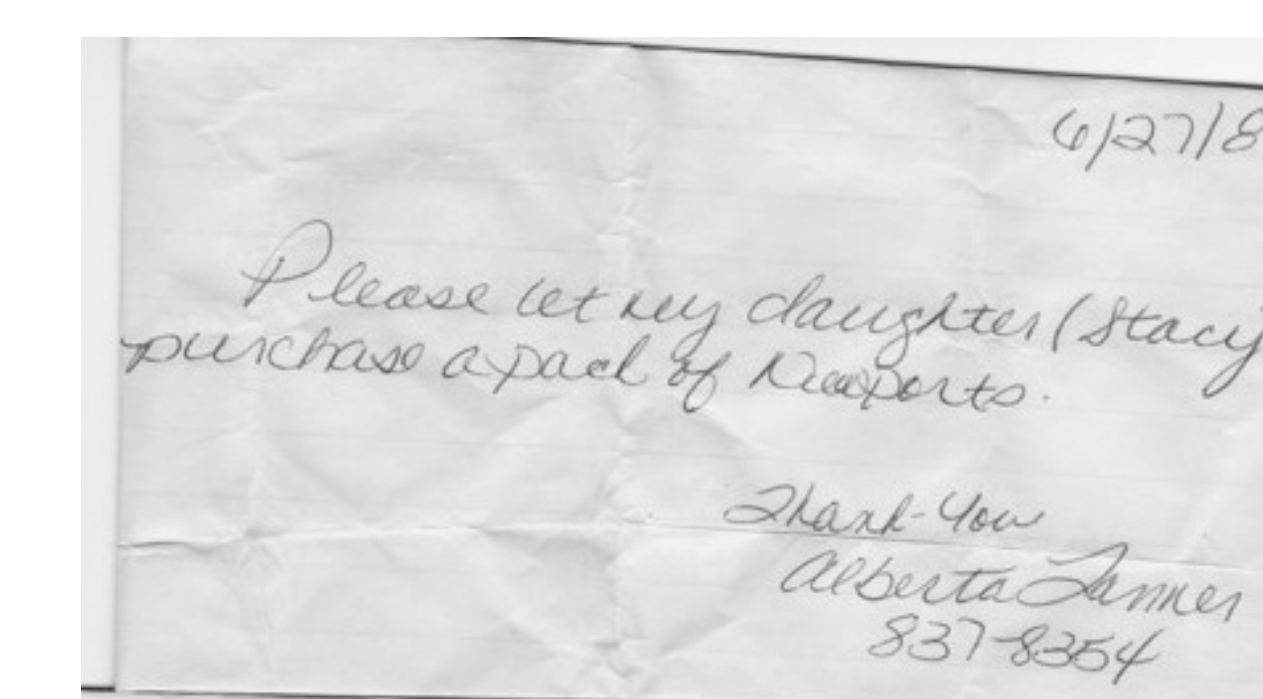 6/27/8
Please let my daughter (Stacy)
purchase a pack of Newports.
Thank-You
Alberta Tanner
837-8354